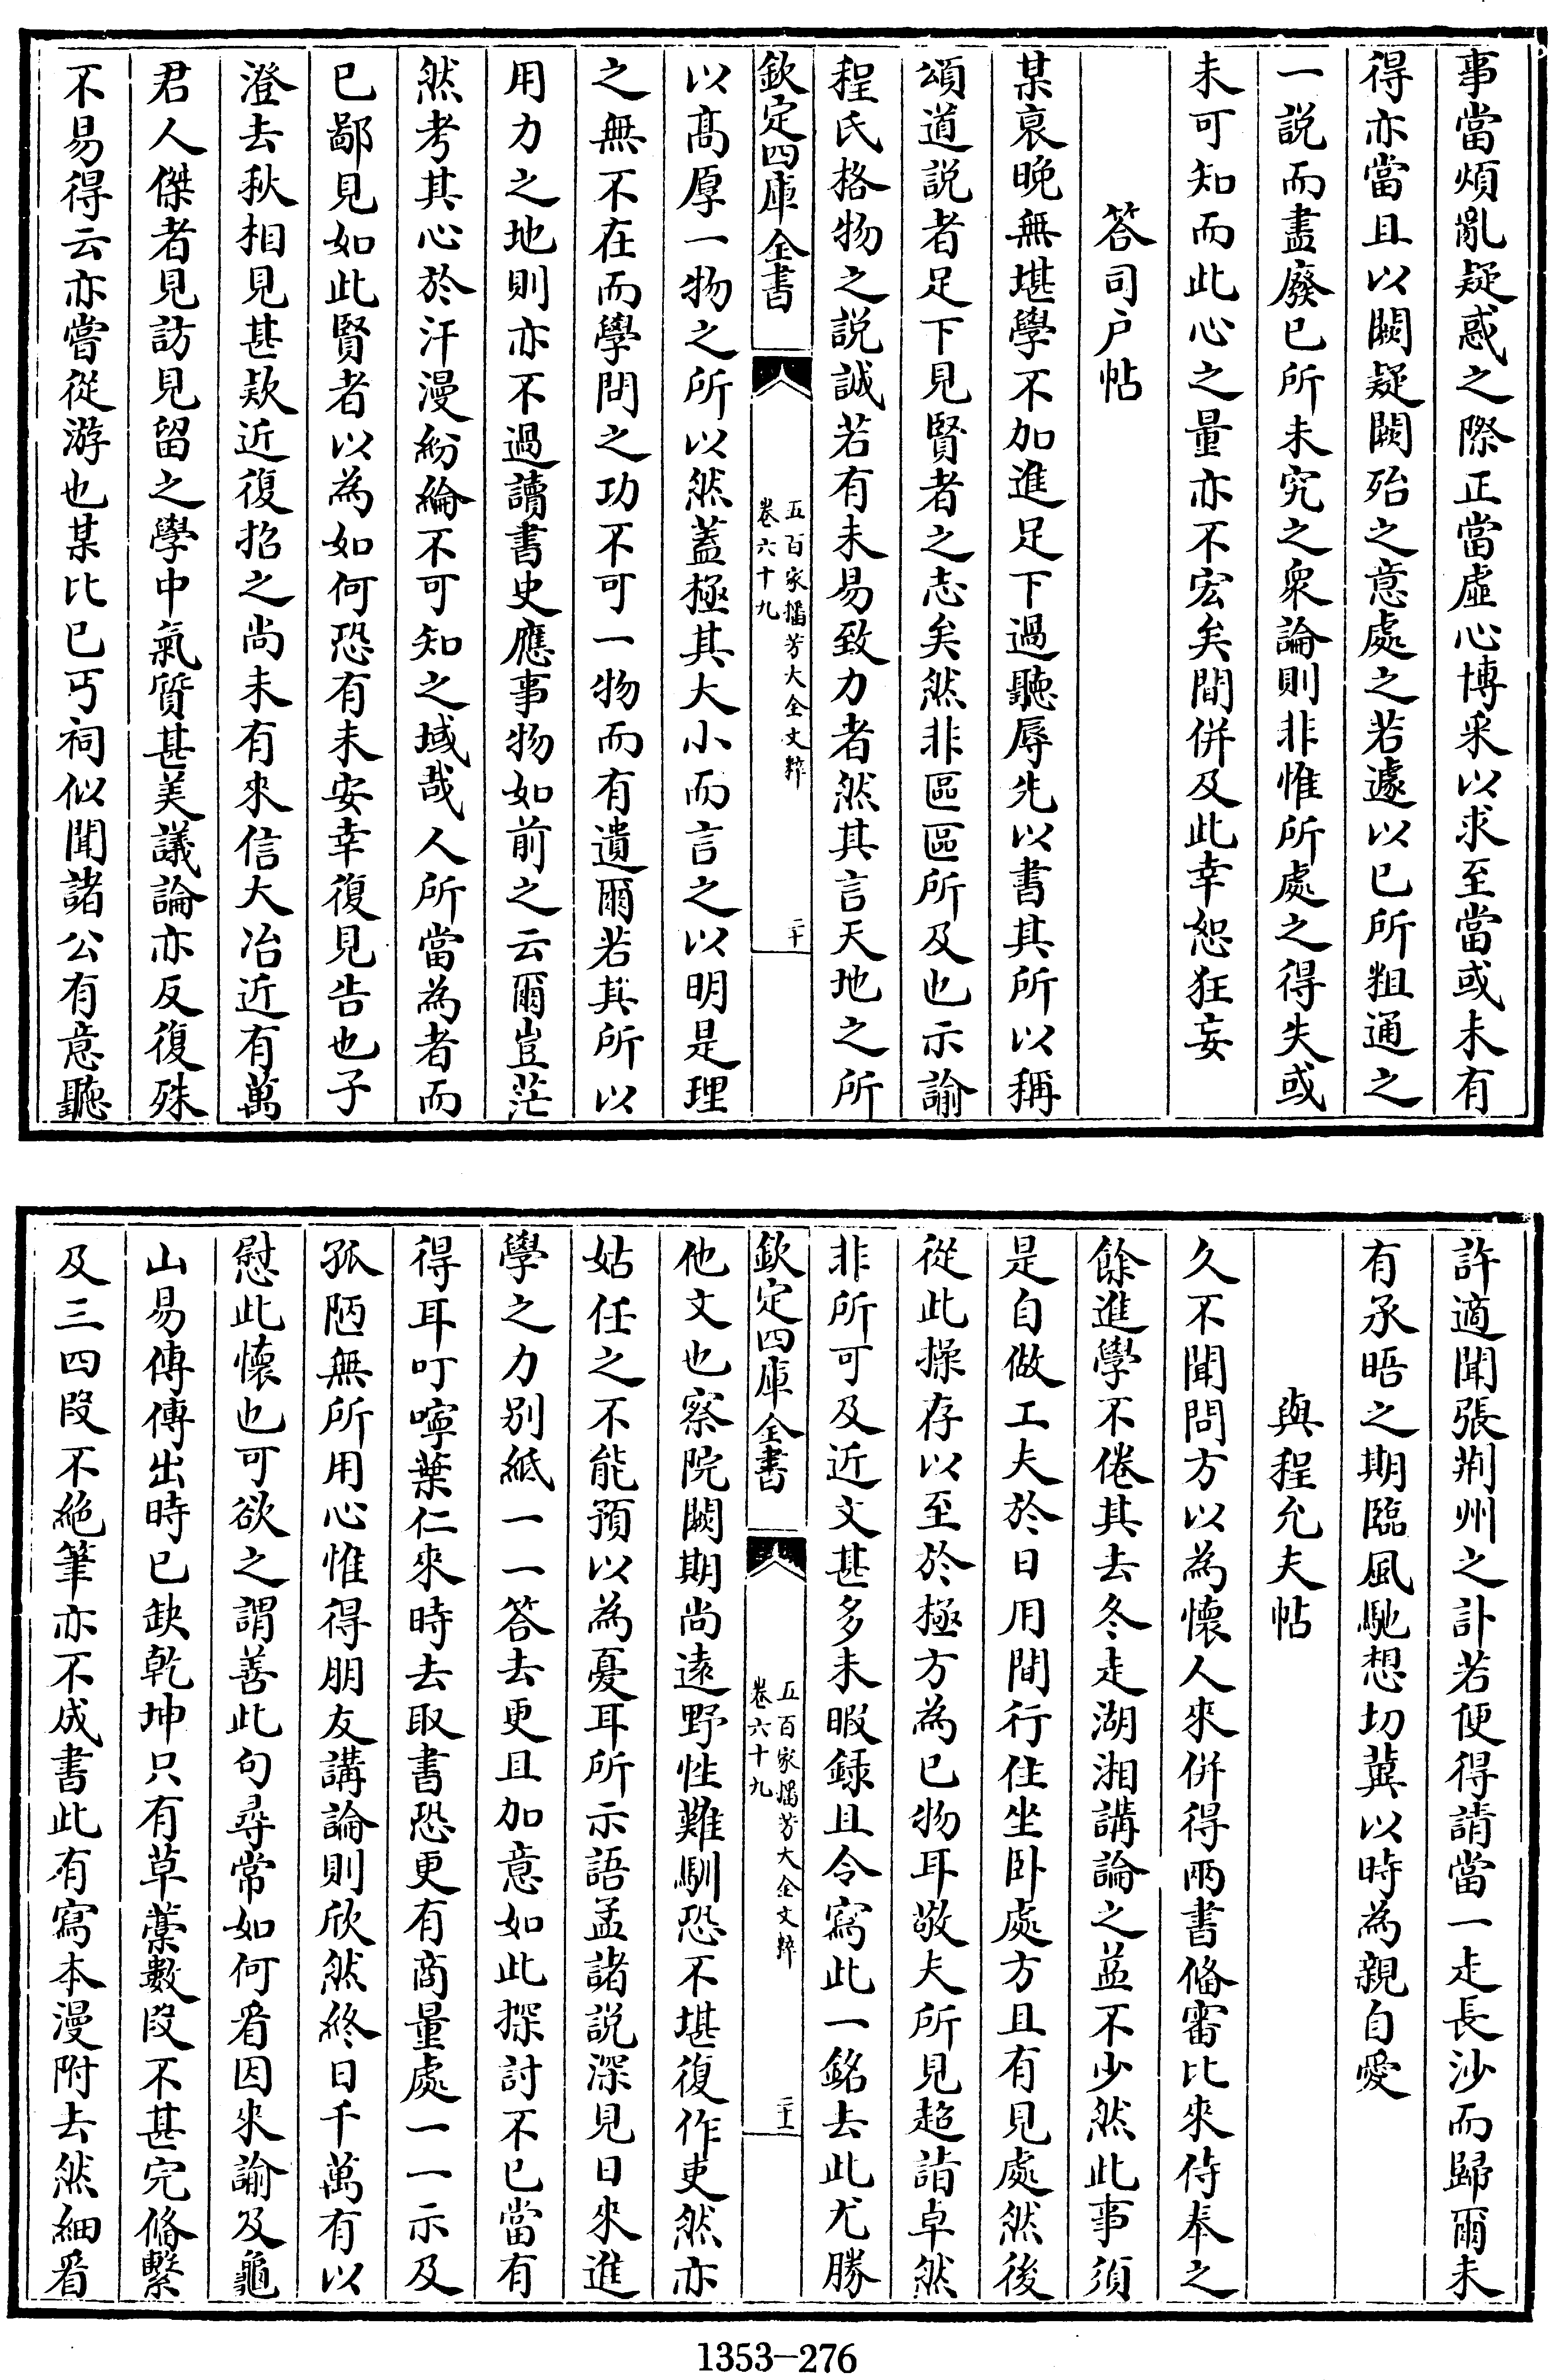 事當煩亂疑惑之際正當虛心博采以求至當或未有
得亦當且以闕疑闕殆之意處之若遽以已所粗通之
一説而盡廢已所未究之衆論則非惟所處之得失或
未可知而此心之量亦不宏矣間併及此幸恕狂妄
答司户帖
某衰晚無堪學不加進足下過聽辱先以書其所以稱
頌道説者足下見賢者之志矣然非區區所及也示諭
程氏格物之説誠若有未易致力者然其言天地之所
欽定四庫全書
五百家播芳大全文粹
卷六十九
二十
以髙厚一物之所以然蓋極其大小而言之以明是理
之無不在而學問之功不可一物而有遺爾若其所以
用力之地則亦不過讀書史應事物如前之云爾豈茫
然考其心於汗漫紛綸不可知之域哉人所當為者而
已鄙見如此賢者以為如何恐有未安幸復見告也子
澄去秋相見甚欵近復招之尚未有來信大冶近有萬
君人傑者見訪見留之學中氣質甚美議論亦反復殊
不易得云亦嘗從游也某比已丐祠似聞諸公有意聽
許適聞張荆州之訃若便得請當一走長沙而歸爾未
有承晤之期臨風馳想切冀以時為親自愛
與程允夫帖
久不聞問方以為懷人來併得兩書備審比來侍奉之
餘進學不倦其去冬走湖湘講論之益不少然此事須
是自做工夫於日用間行住坐卧處方且有見處然後
從此操存以至於極方為已物耳敬夫所見超詣卓然
非所可及近文甚多未暇録且令寫此一銘去此尤勝
欽定四庫全書
五百家播芳大全文粹
卷六十九
二十一
他文也察院闕期尚逺野性難馴恐不堪復作吏然亦
姑任之不能預以為憂耳所示語孟諸説深見日來進
學之力别紙一一答去更且加意如此探討不已當有
得耳叮嚀葉仁來時去取書恐更有商量處一一示及
孤陋無所用心惟得朋友講論則欣然終日千萬有以
慰此懷也可欲之謂善此句尋常如何看因來諭及龜
山易傳傳出時已缺乾坤只有草藁數段不甚完備繫
及三四段不絶筆亦不成書此有寫本漫附去然細看
1353—276